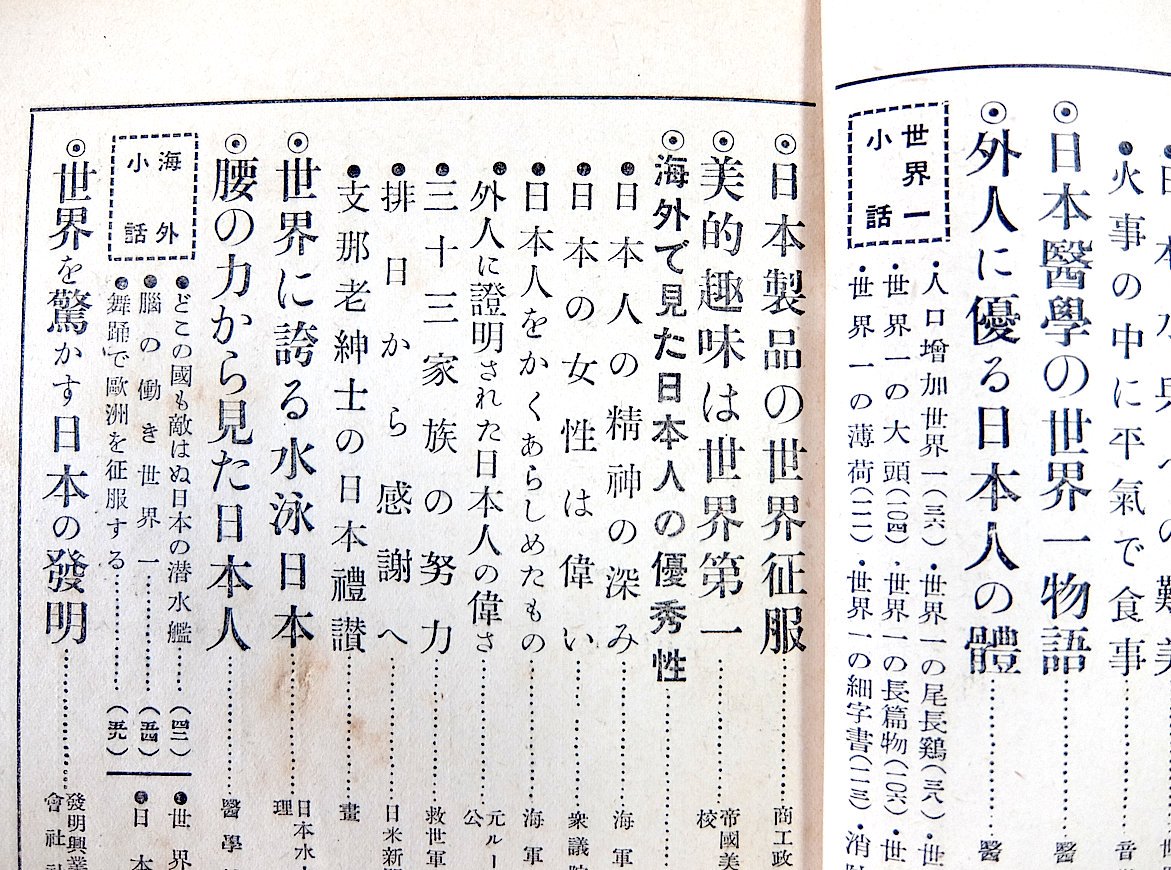 火事の中に平氣で食事
音
◉日本醫學の世界一物語
醫
◉外人に優る日本人の體
醫
世界一
小話
・人口增加世界一(三六)・世界一の尾長鷄(三八)・世
・世界一の大頭(一〇四)・世界一の長篇物(一〇六)・世
・世界一の薄荷(一一一)・世界一の細字書(一一三)・消
◉日本製品の世界征服
商工政
◉美的趣味は世界第一
帝國美
校
◉海外で見た日本人の優秀性
●日本人の精神の深み
海軍
●日本の女性は偉い
衆議院
●日本人をかくあらしめたもの
海軍
●外人に證明された日本人の偉さ
元ルー
公
●三十三家族の努力
救世軍
●排日から感謝へ
日米新
●支那老紳士の日本禮讃
畫
◉世界に誇る水泳日本
日本水
理
◉腰の力から見た日本人
醫學
海外
小話
●どこの國も敵はぬ日本の潜水艦(四二)
●腦の働き世界一(五四)
●舞踊で歐洲を征服する(五九)
●世界
●日本
◉世界を驚かす日本の發明
發明興業
會社